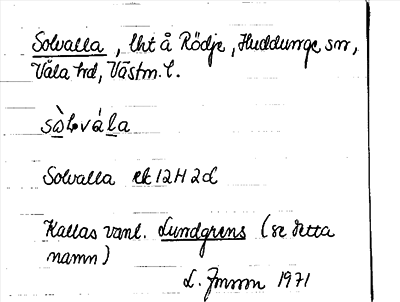 Solvalla, lht å Rödje, Huddunge sn,
Våla hd, Västm. l.
sòlvála
Solvalla ek 12H 2d
Kallas vanl. Lundgrens (se detta
namn)
1971